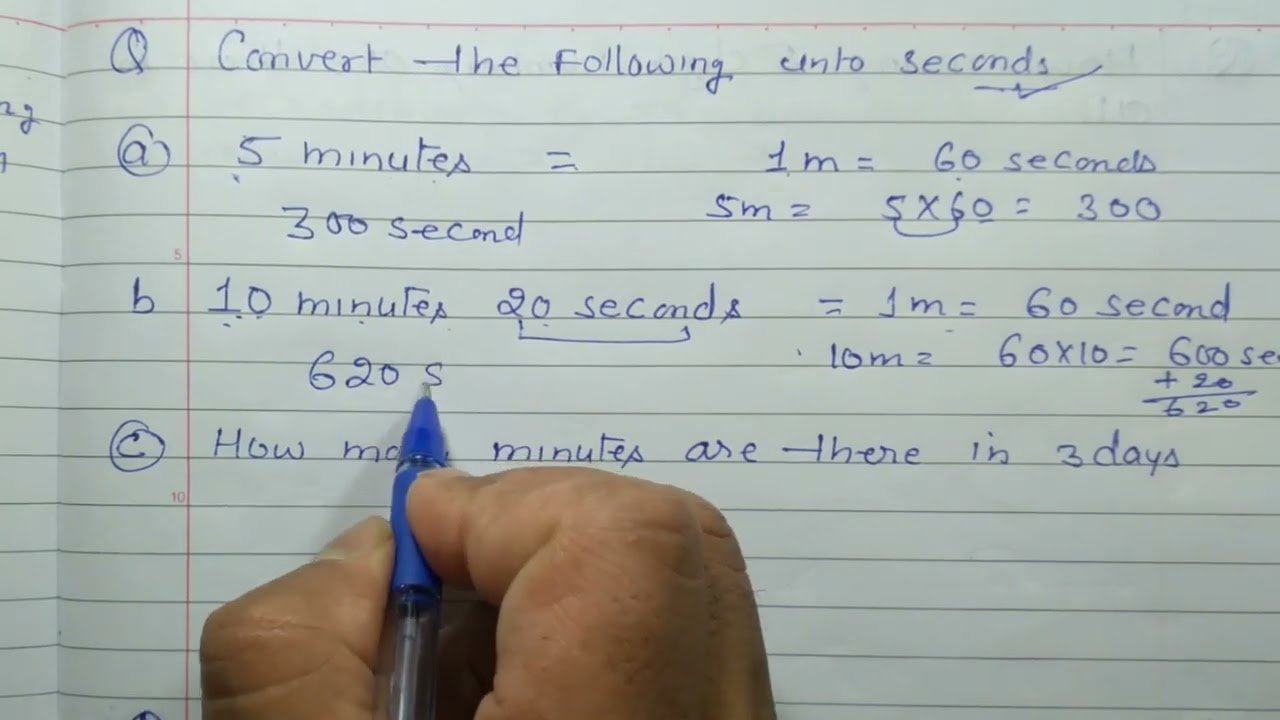 Q Convert the Following into seconds
ng
a 5 minutes = 1m = 60 seconds
300 second 5m = 5×60 = 300
5
b 10 minutes 20 seconds = 1m = 60 second
620 s 10m = 60×10 = 600 se
+ 20
620
c How ma minutes are there in 3 days
10